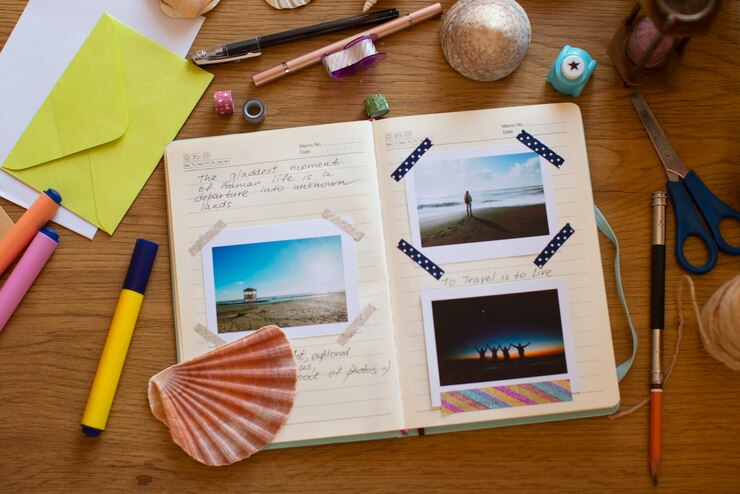 Memo No.
Date
The gladdest moment
of human life is a
departure into unknown
lands
explored
us,
of photos =)
Memo No.
Date
To Travel is to Live